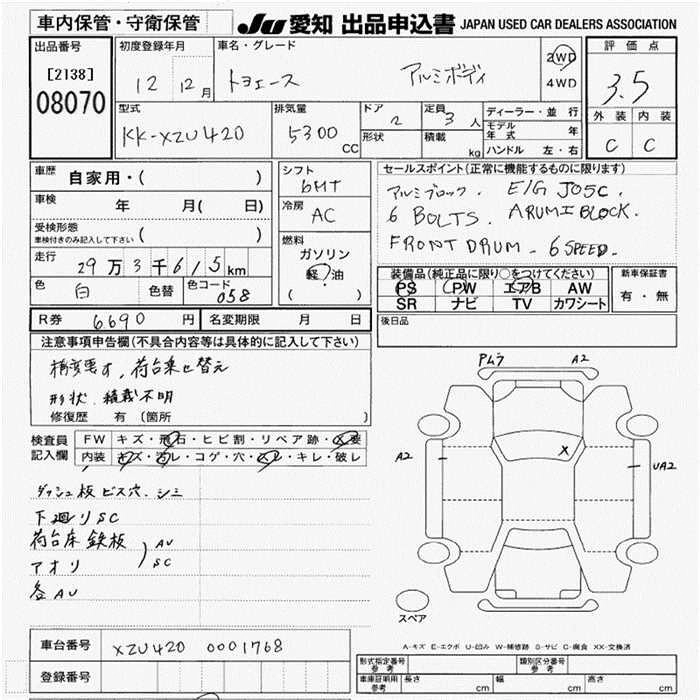 車内保管・守衛保管 JU 愛知 出品申込書 JAPAN USED CAR DEALERS ASSOCIATION
出品番号 [2138] 08070
初度登録年月 12 12月
車名・グレード トヨエース アルミボディ
2WD 4WD
評価点 3.5
外装 内装
C C
型式 KK-XZU420
排気量 5300 CC
ドア 2 定員 3人
形状 積載 kg
ディーラー・並行
モデル年式 年
ハンドル 左・右
車歴 自家用・( )
車検 年 月( 日)
受検形態 車検付きのみ記入して下さい ( )
走行 29万3千615km
色 白 色替 色コード 058
シフト 6MT
冷房 AC
燃料 ガソリン 軽油 ( ・ )
セールスポイント(正常に機能するものに限ります)
アルミブロック. E/G J05C.
6 BOLTS. ARUMI BLOCK.
FRONT DRUM - 6 SPEED.
装備品(純正品に限り○をつけてください)
PS PW エアB AW
SR ナビ TV カワシート
新車保証書 有・無
R券 6690円 名変期限 月 日
後日品
注意事項申告欄(不具合内容等は具体的に記入して下さい)
構変要す,荷台乗せ替え
形状.積載不明
修復歴 有 〔箇所 〕
検査員記入欄
FW キズ・飛石・ヒビ割・リペア跡・X要
内装 キズ・汚レ・コゲ・穴・スレ・キレ・破レ
ダッシュ板 ビス穴.シミ
下廻りSC
荷台床 鉄板 AU
アオリ SC
各AU
PMラ A2
A2 X UA2
スペア
A-キズ E-エクボ U-凹み W-補修跡 S-サビ C-腐食 XX-交換済
車台番号 XZU420 0001768
登録番号
形式指定番号 参考 類別区分番号 参考
車庫証明用 参考 長さ cm 幅 cm 高さ cm